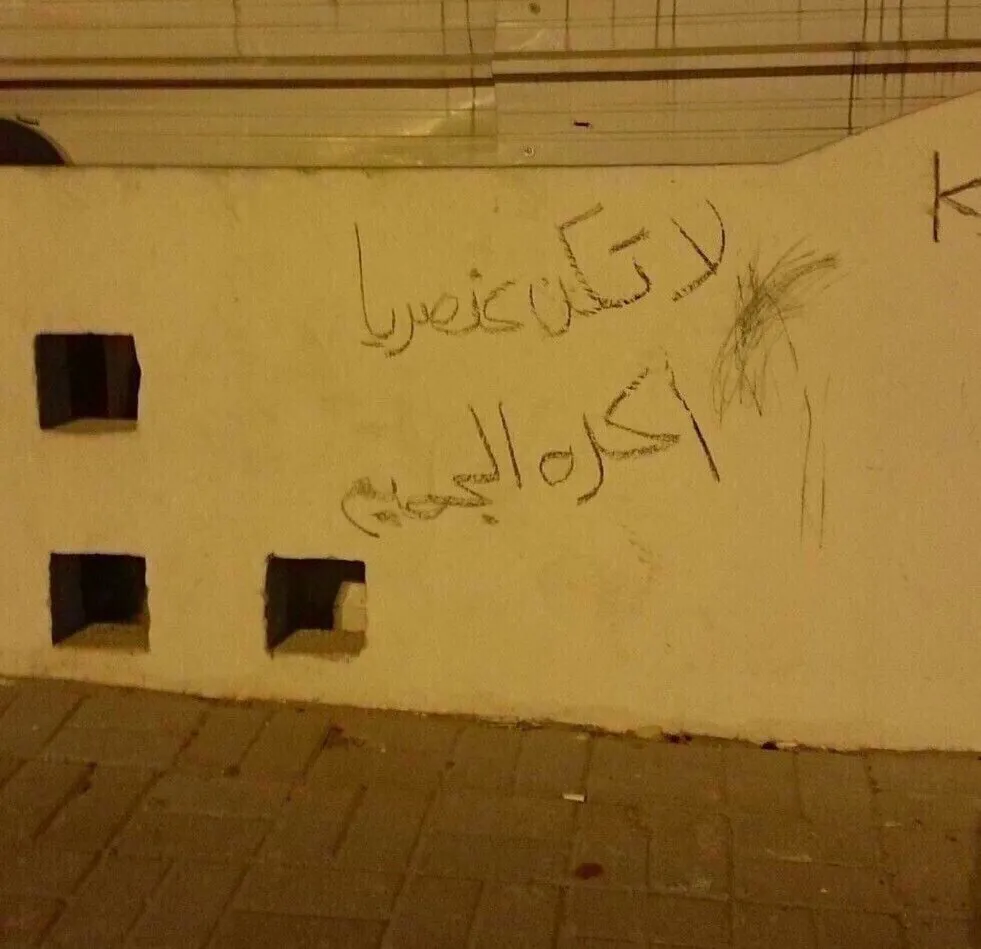 لا تكن عنصريا
اكره الجميع
K